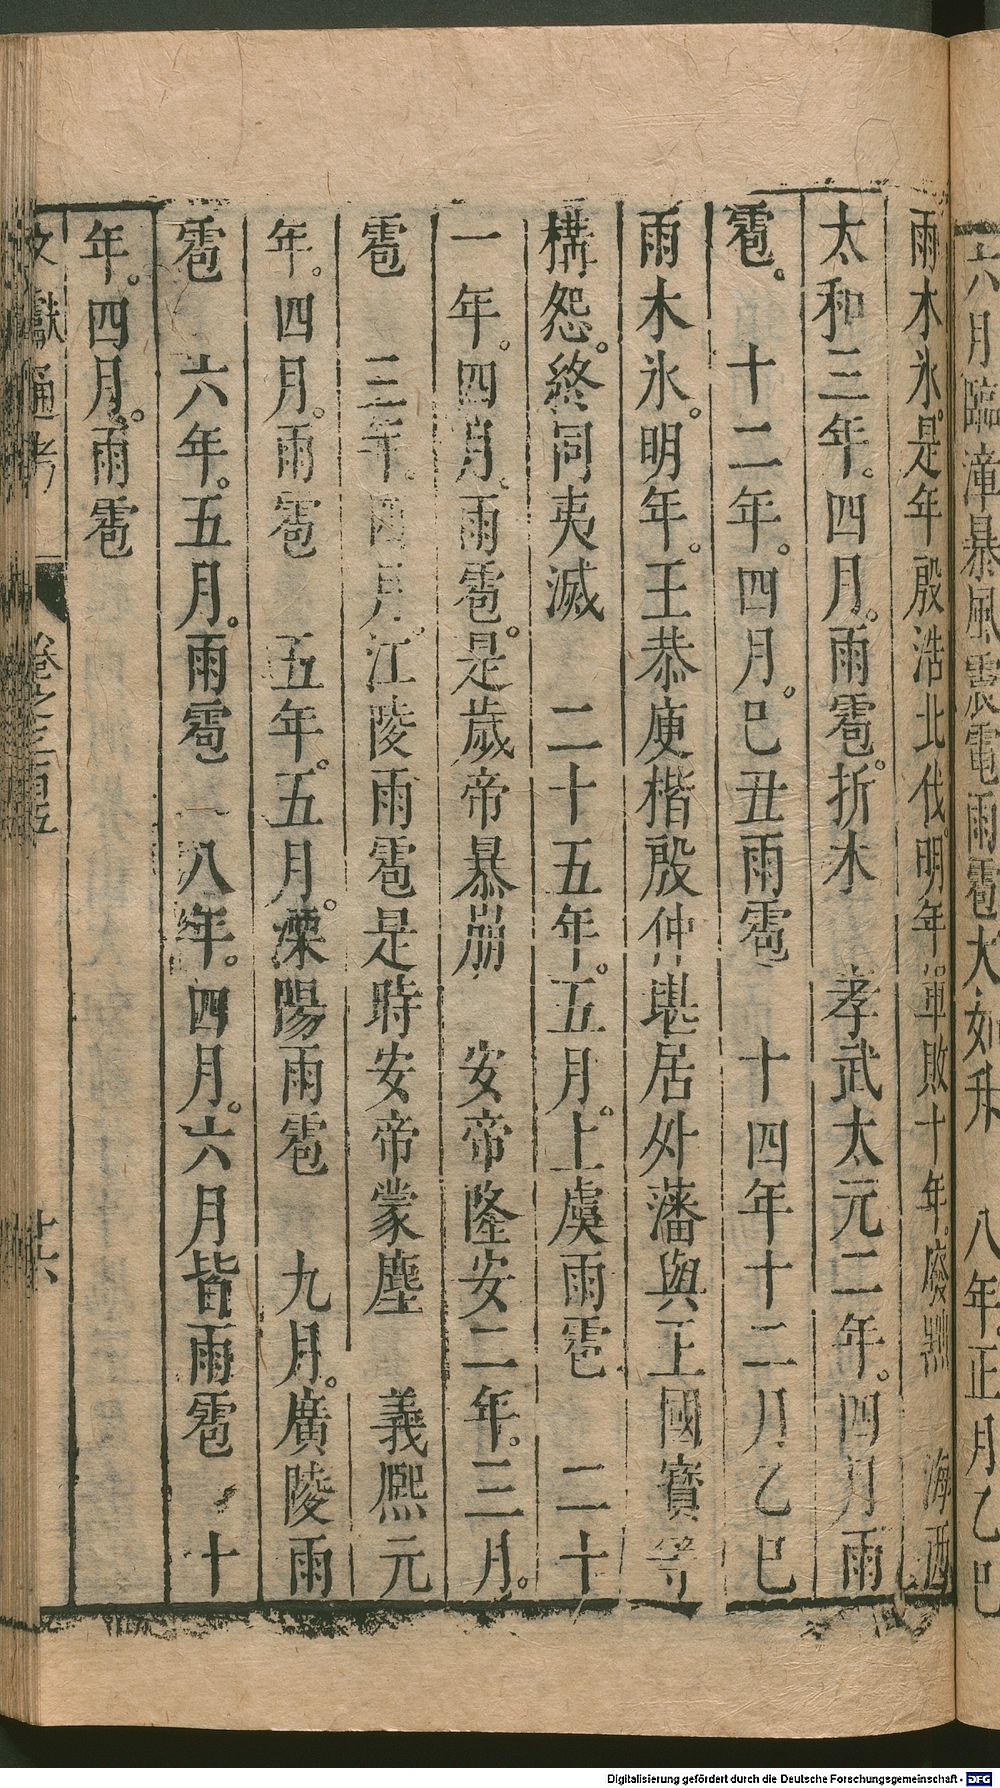 六月臨漳暴風震電雨雹大如升　八年。正月乙巳
雨木氷。是年殷浩北伐。明年軍敗十年。廢黜　海西
太和三年。四月。雨雹。折木　孝武太元二年。四月雨
雹。　十二年。四月。巳丑雨雹　十四年十二月乙巳
雨木氷。明年。王恭庾楷殷仲堪居外藩與王國寳等
構怨。終同夷滅　二十五年。五月。上虞雨雹　二十
一年。四月。雨雹。是歲帝暴崩　安帝隆安二年。三月。
雹　三年。四月。江陵雨雹是時安帝蒙塵　義熙元
年。四月。雨雹　五年。五月。溧陽雨雹　九月。廣陵雨
雹　六年。五月。雨雹　八年。四月。六月皆雨雹　十
年。四月。雨雹
文獻通考　卷之三百五　廿六
Digitalisierung gefördert durch die Deutsche Forschungsgemeinschaft - DFG